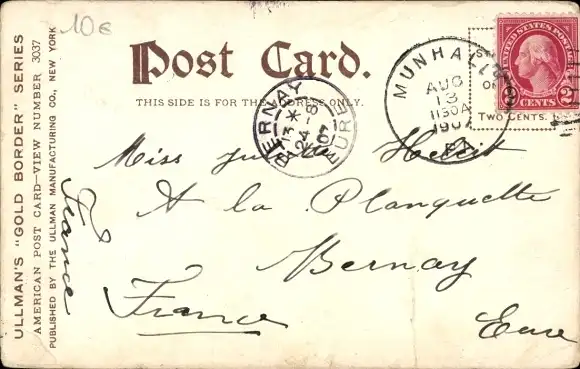 10€
Post Card.
THIS SIDE IS FOR THE ADDRESS ONLY.
ULLMAN'S "GOLD BORDER" SERIES
AMERICAN POST CARD—VIEW NUMBER 3037
PUBLISHED BY THE ULLMAN MANUFACTURING CO., NEW YORK
UNITED STATES POSTAGE
2 CENTS 2
TWO CENTS.
MUNHALL
AUG
13
1130A
1907
PA.
BERNAY
24 -8
07
EURE
Miss
A la Planquette
Bernay
France
Eure
France